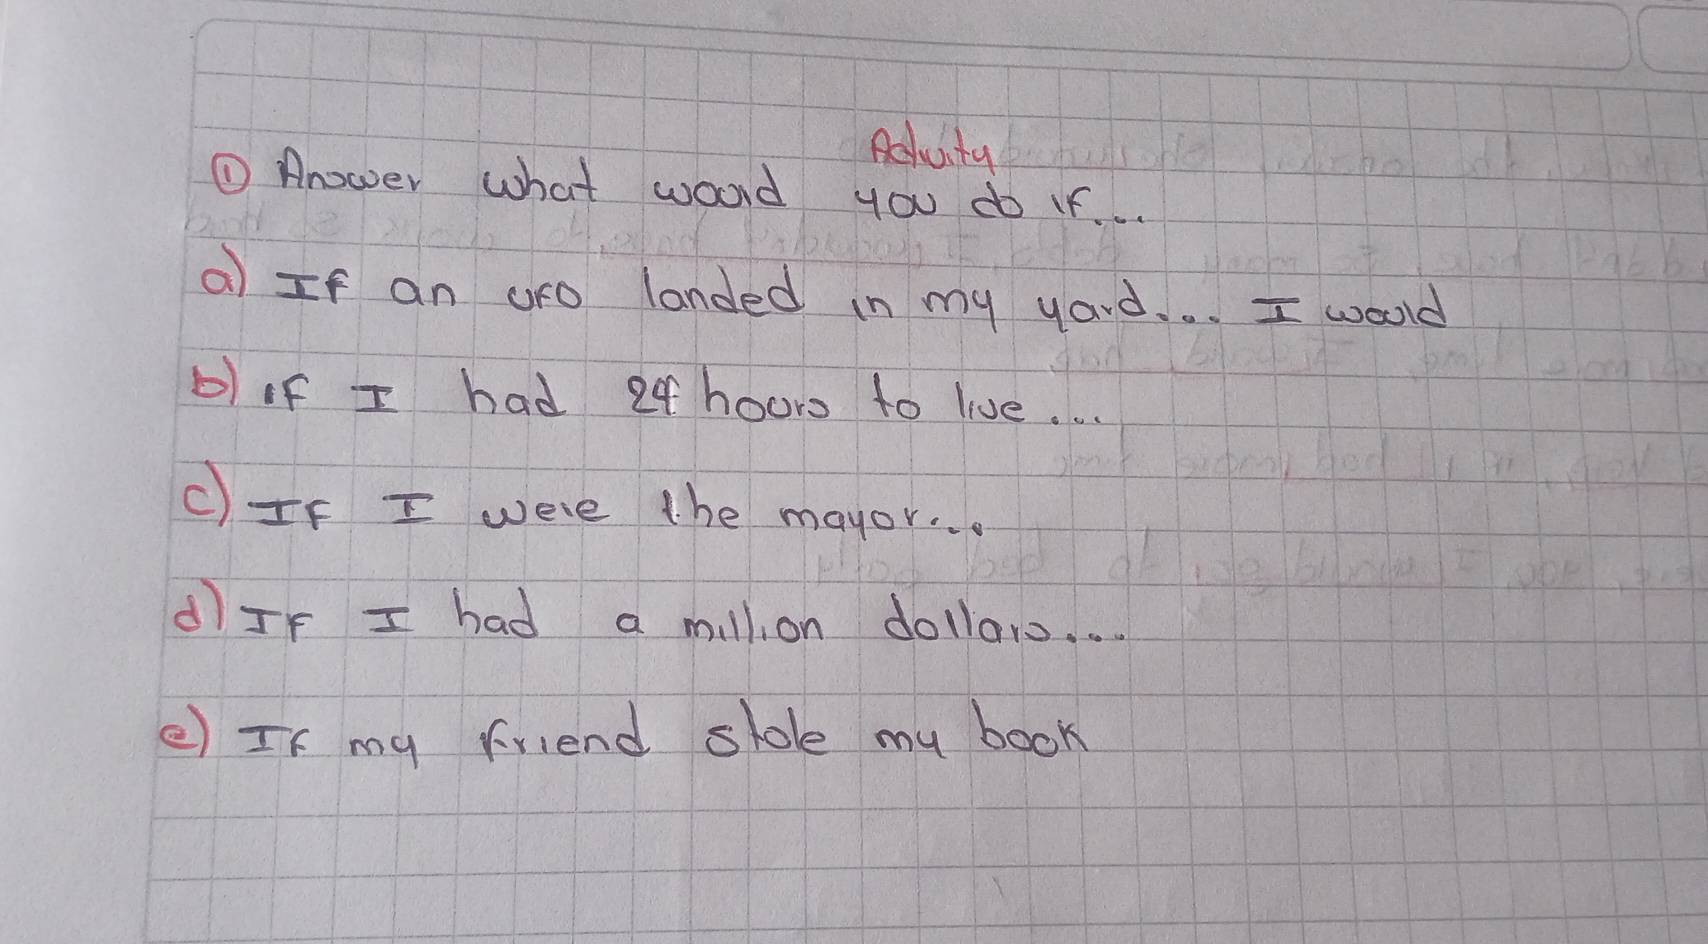 Activity
① Answer what would you do if...
a) If an UFO landed in my yard... I would
b) if I had 24 hours to live...
c) If I were the mayor...
d) If I had a million dollars...
e) If my friend stole my book